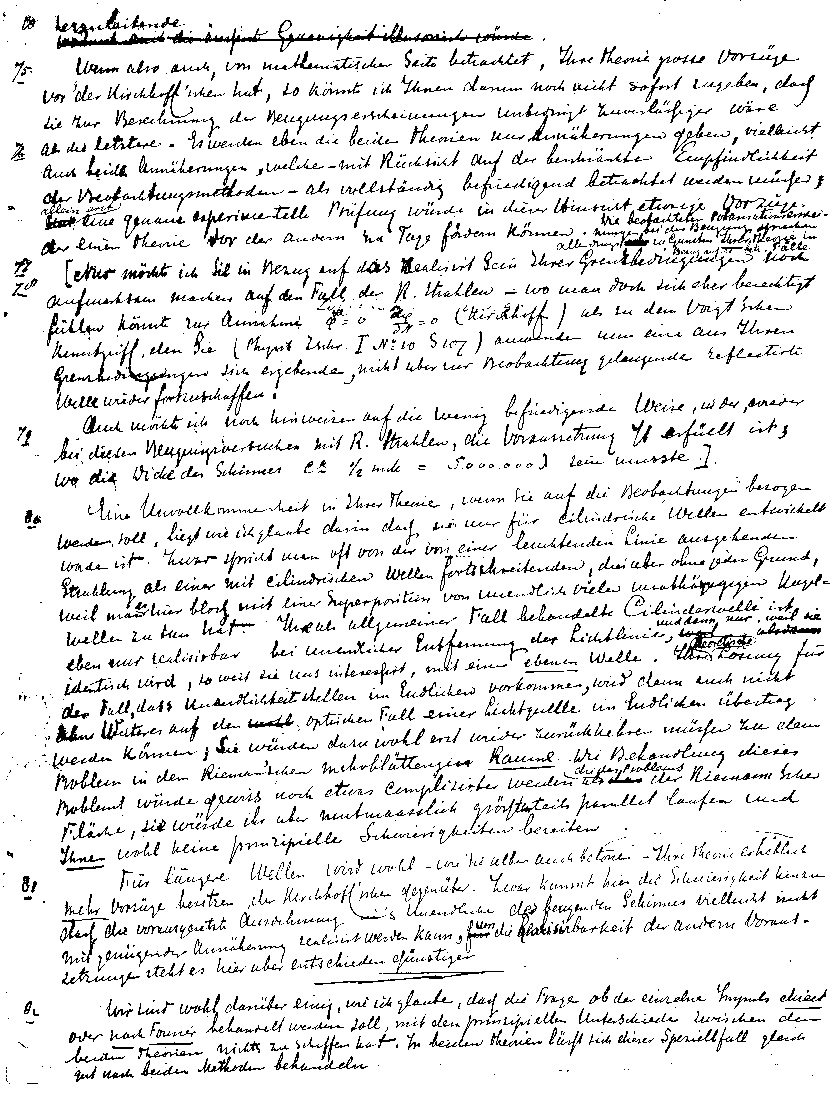 herzuleitende
womit auch die äusserste Genauigkeit illusorisch würde.
75 Wenn also auch, von mathematischer Seite betrachtet, Ihre Theorie grosse Vorzüge
vor der Kirchhoff'schen hat, so könnte ich Ihnen darum noch nicht sofort zugeben, dasz
sie zur Berechnung der Beugungserscheinungen unbedingt zuverlässiger wäre
als die letztere. Es werden eben die beiden Theorien nur Annäherungen geben, vielleicht
auch beide Annäherungen, welche – mit Rücksicht auf der beschränkte Empfindlichkeit
der Beobachtungsmethoden – als vollständig befriedigend betrachtet werden müssen;
allein eine genaue experimentelle Prüfung würde in dieser Hinsicht etwaige Vorzüge
der einen Theorie vor der andern zu Tage fördern können. Die beobachteten
bei der Beugung sprechen
allerdings zu Gunsten Ihrer Theorie in
[Nur möchte ich Sie in Bezug auf das Realisirt Sein Ihrer Grenzbedingungen noch
aufmerksam machen auf den Fall der R. Strahlen – wo man doch sich eher berechtigt
fühlen könnte zur Annahme = 0 = 0 (Kirchhoff) als zu dem Voigt'schen
Kunstgriff, den Sie (Physik Zschr. I No 10 S 107) anwenden um eine aus Ihren
Grenzbedingungen sich ergebende, nicht aber zur Beobachtung gelangende reflectirte
Welle wieder fortzuschaffen.
79 Auch möchte ich noch hinweisen auf die wenig befriedigende Weise, in der, wieder
bei diesen Beugungsversuchen mit R. Strahlen, die Voraussetzung erfüllt ist,
wo die Dicke des Schirmes ca 1/2 m.m. = 5.000.000 λ sein musste.].
80 Eine Unvollkommenheit in Ihrer Theorie, wenn Sie auf die Beobachtungen bezogen
werden soll, liegt wie ich glaube darin dasz sie nur für cilindrische Wellen entwickelt
worden ist. Zwar spricht man oft von der von einer leuchtenden Linie ausgehenden
Strahlung als einer mit cilindrischen Wellen fortschreitenden, dies aber ohne jeden Grund,
weil man hier blosz mit einer Superposition von unendlich vielen unabhängigen Kugel-
wellen zu tun hat. Ihre als allgemeiner Fall behandelte Cilinderwelle ist
eben nur realisirbar bei unendlicher Entfernung der Lichtlinie, und dann nur, weil sie
identisch wird, so weit sie uns interessirt, mit einer ebenen Welle. Ihre Lösung für
der Fall, dass Unendlichkeitstellen im Endlichen vorkommen, wird dann auch nicht
ohne Weiteres auf den optischen Fall einer Lichtquelle im Endlichen übertragen
werden können; Sie würden dazu wohl erst wieder zurückkehren müssen zu dem
Problem in dem Riemann'schen mehrblättrigen Raume. Die Behandlung dieses
Problems würde gewiss noch etwas complizirter werden als der Riemann'schen
Fläche, sie würde ihr aber mutmaasslich grösstenteils parallel laufen und
Ihnen wohl keine prinzipielle Schwierigkeiten bereiten.
81 Für längere Wellen wird wohl – wie Sie alles auch betonen – Ihre Theorie erheblich
mehr Vorzüge besitzen, der Kirchhoff'schen gegenüber. Zwar kommt hier die Schwierigkeit hinzu
dasz die vorausgesetzte Ausdehnung in's Unendliche des beugenden Schirmes vielleicht nicht
mit genügender Annäherung realisirt werden kann, für die Realisirbarkeit der andern Voraus-
setzungen steht es hier aber entschieden günstiger
82 Wir sind wohl darüber einig, wie ich glaube, dasz die Frage ob der einzelne Impuls direct
oder nach Fourier behandelt werden soll, mit dem prinzipiellen Unterschiede zwischen den
beiden Theorien, nichts zu schaffen hat. In beiden Theorien lässt sich dieser Spezialfall gleich
gut nach beiden Methoden behandeln.